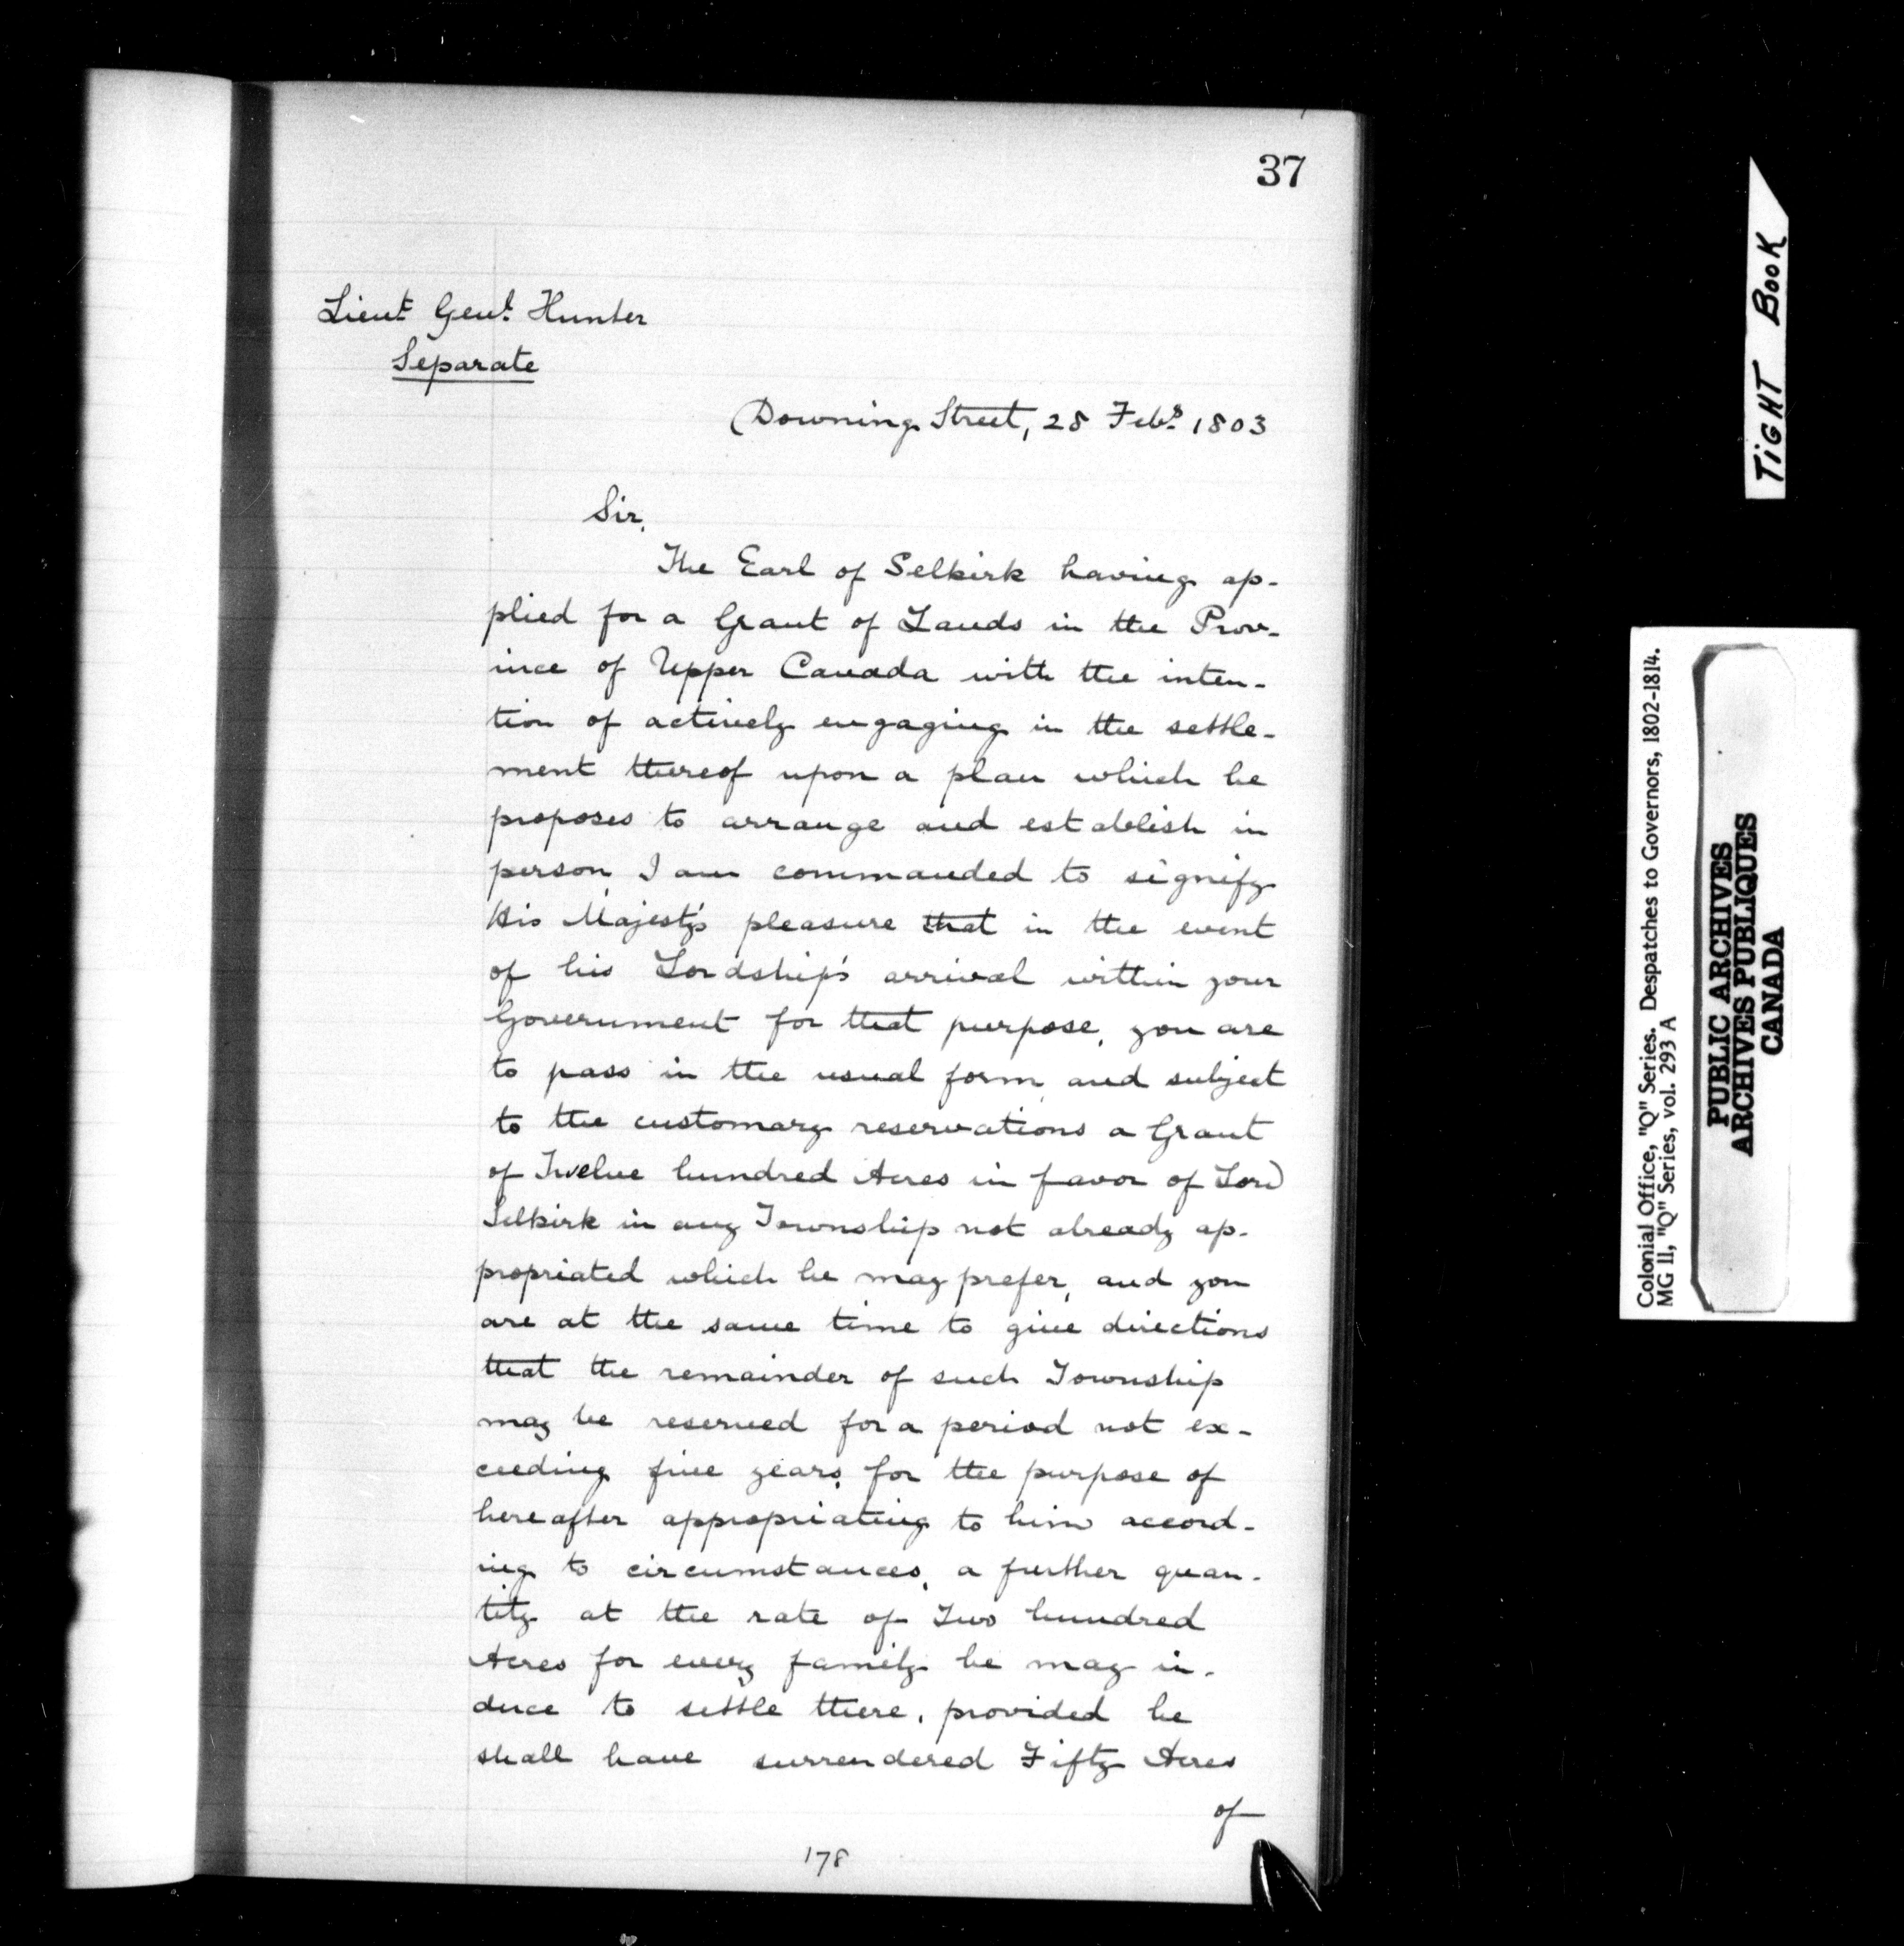 37
Lieut Genl. Hunter
Separate
Downing Street, 28 Feby. 1803
Sir,
The Earl of Selkirk having ap-
plied for a Grant of Lands in the Prov-
ince of Upper Canada with the inten-
tion of actively engaging in the settle-
ment thereof upon a plan which he
proposes to arrange and establish in
person, I am commanded to signify
His Majesty's pleasure that in the event
of his Lordship's arrival within your
Government for that purpose, you are
to pass in the usual form, and subject
to the customary reservations a Grant
of Twelve hundred Acres in favor of Lord
Selkirk in any Township not already ap-
propriated which he may prefer, and you
are at the same time to give directions
that the remainder of such Township
may be reserved for a period not ex-
ceeding five years, for the purpose of
hereafter appropriating to him accord-
ing to circumstances, a further quan-
tity at the rate of Two hundred
Acres for every family he may in-
duce to settle there, provided he
shall have surrendered Fifty Acres
of
178
TIGHT BOOK
Colonial Office, "Q" Series. Despatches to Governors, 1802-1814.
MG 11, "Q" Series, vol. 293 A
PUBLIC ARCHIVES
ARCHIVES PUBLIQUES
CANADA